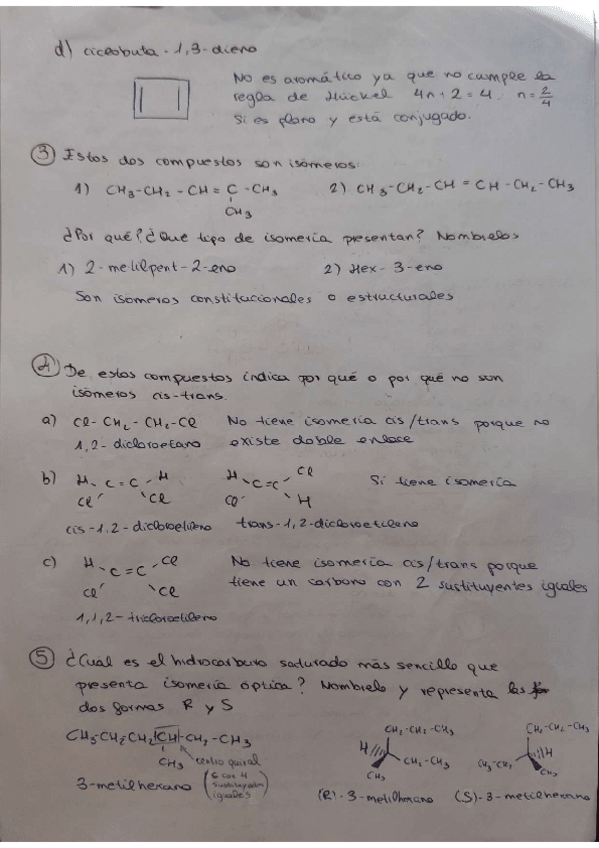 d) ciclobuta-1,3-dieno
No es aromático ya que no cumple la
regla de Hückel 4n+2=4 n=2/4
Si es plano y está conjugado.
3 Estos dos compuestos son isómeros:
1) CH3-CH2-CH=C-CH3 2) CH3-CH2-CH=CH-CH2-CH3
CH3
¿Por qué? ¿Que tipo de isomería presentan? Nombrelos
1) 2-metilpent-2-eno 2) Hex-3-eno
Son isomeros constitucionales o estructurales
4 De estos compuestos indica por qué o por qué no son
isómeros cis-trans.
a) Cl-CH2-CH2-Cl No tiene isomería cis/trans porque no
1,2-dicloroetano existe doble enlace
b) H C=C H H C=C Cl Si tiene isomería
Cl Cl Cl H
cis-1,2-dicloroetileno trans-1,2-dicloroetileno
c) H C=C Cl No tiene isomería cis/trans porque
Cl Cl tiene un carbono con 2 sustituyentes iguales
1,1,2-tricloroetileno
5 ¿Cuál es el hidrocarburo saturado más sencillo que
presenta isomería óptica? Nombrelo y representa las
dos formas R y S
CH3CH2CH2CH-CH2-CH3 CH2-CH2-CH3 CH2-CH2-CH3
CH3 centro quiral H CH2-CH3 CH3-CH2 H
CH3 CH3
3-metilhexano (C con 4
iguales)
(R)-3-metilhexano (S)-3-metilhexano